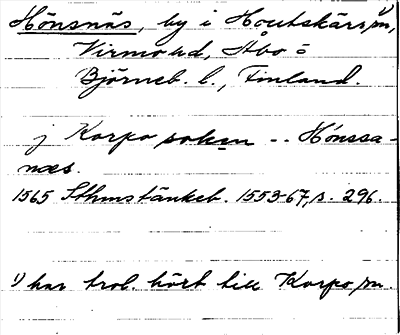 Hönsnäs, by i Houtskärs sn,¹⁾
Virmo hd, Åbo o
Björneb. l., Finland.
j Korpo soken -- Hönssa-
næs.
1565 Sthmstänkeb. 1553-67, s. 296.
¹⁾ har trol. hört till Korpo sn.